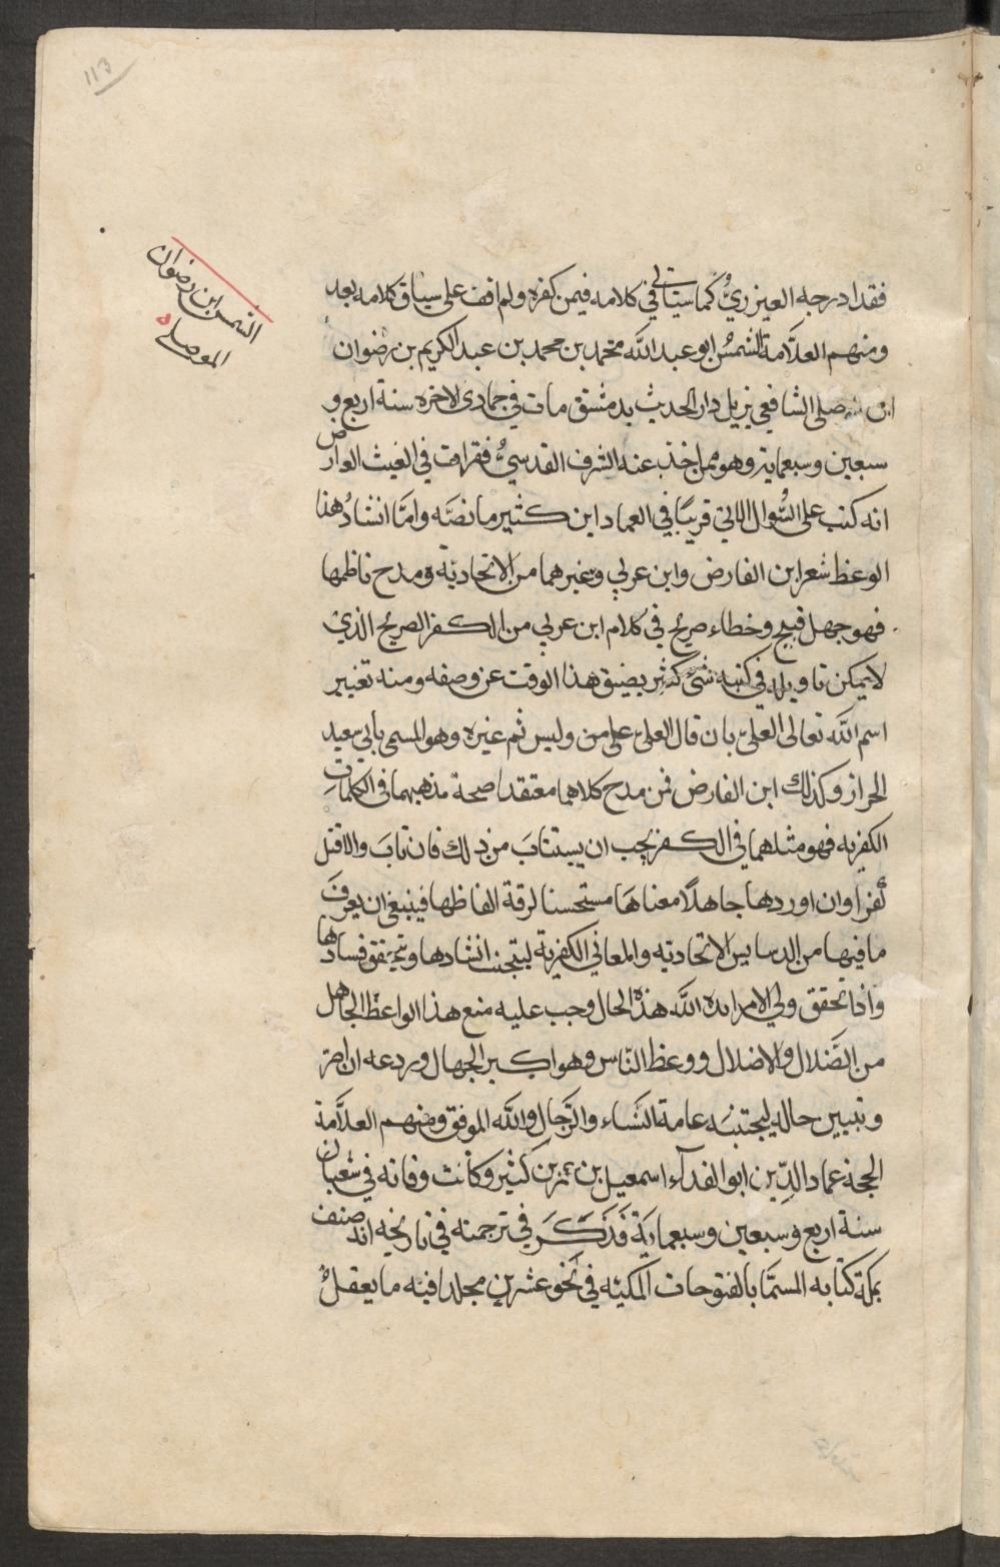 113
الشمس ابن رضوان
الموصلي
فقد ادرجه العيزري كما سيأتي في كلامه فيمن كفره ولم اقف على سياق كلامه بعد
ومنهم العلَّامة الشمسُ ابو عبد الله محمد بن محمد بن عبد الكريم بن رضوان
ابن الموصلي الشافعي نزيل دار الحديث بدمشق مات في جمادى الاخره سنة اربع و
سبعين وسبعماية وهو ممن اخذ عنه الشرف القدسيُّ فقرات في الغيث العارض
انه كتب على السُّوال الاتي قريبًا في العماد ابن كثير ما نصَّه وامَّا انشادُ هذا
الوعظ شعر ابن الفارض وابن عربي وغيرهما من الاتحاديّة ومدح ناظمها
فهو جهل قبيح وخطاء صريح في كلام ابن عربي من الكفر الصريح الذي
لا يمكن تاويله في كتبه شئ كثير يضيق هذا الوقت عن وصفه ومنه تغيير
اسم الله تعالى العليّ بان قال العليّ على من وليس ثم غيره وهو المسمى بابي سعيد
الخراز وكذلك ابن الفارض فمن مدح كلاهما معتقدا صحة مذهبهما في الكلماتِ
الكفريه فهو مثلهما في الكفر يجب ان يستتابَ من ذلك فان تابَ والا قتل
كفرًا وان اوردها جاهلًا معناهَا مستحسنا لرقة الفاظها فينبغي ان يعرفَ
ما فيها من الدسايس الاتحاديه والمعاني الكفرية ليتجنب انشادها ويتحقق فسادها
واذا تحقق ولي الامر ايده الله هذه الحال وجب عليه منع هذا الواعظ الجاهل
من الضَلال والاضلال ووعظ النّاس وهو اكبر الجهال وردعه ان اصرّ
وتبيين حاله ليجتنبَه عامة النسَاء والرّجال والله الموفق ومنهم العلَّامة
الحجة عماد الدِّين ابو الفدآء اسمعيل بن عمر بن كثير وكانت وفاته في شعبان
سنة اربع وسبعين وسبعماية فَذكَرَ في ترجمته في تاريخه انه صنف
بمكة كتابه المسمّا بالفتوحات المكيّه في نحو عشرين مجلدا فيه ما يعقلُ